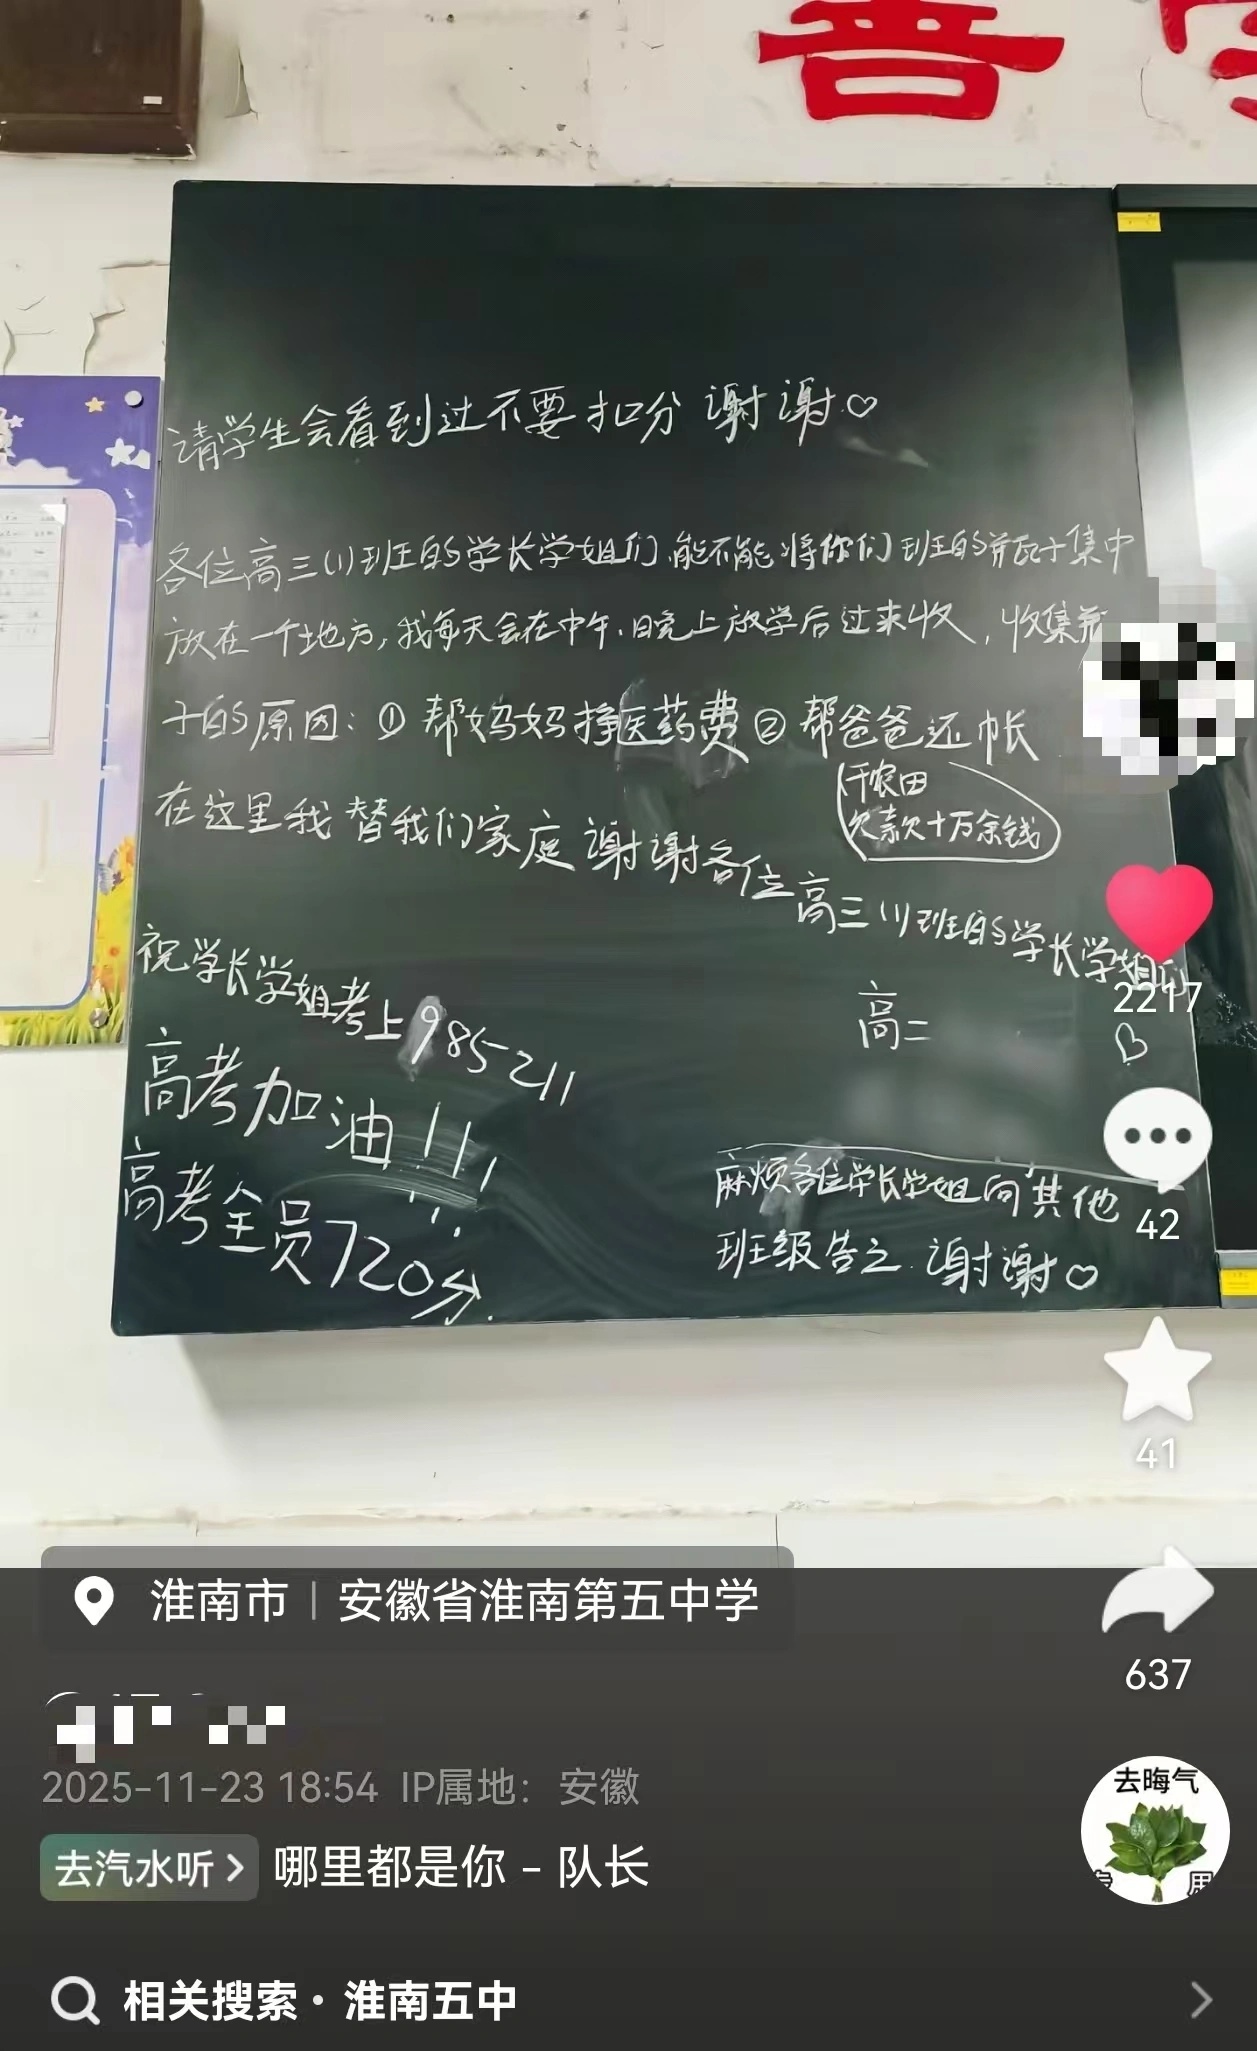 普
请学生会看到过不要扣分 谢谢♡
各位高三(1)班的学长学姐们,能不能将你们班的瓶子集中
放在一个地方,我每天会在中午、晚上放学后过来收,收集瓶
子的原因:① 帮妈妈挣医药费② 帮爸爸还帐
干农田
欠款十万余钱
在这里我替我们家庭谢谢各位高三(1)班的学长学姐们
高二
祝学长学姐考上985 211
高考加油!!!
高考全员720分.
麻烦各位学长学姐向其他
班级告之.谢谢♡
2217
42
41
637
淮南市|安徽省淮南第五中学
2025-11-23 18:54 IP属地:安徽
去汽水听 > 哪里都是你 - 队长
去晦气
相关搜索·淮南五中